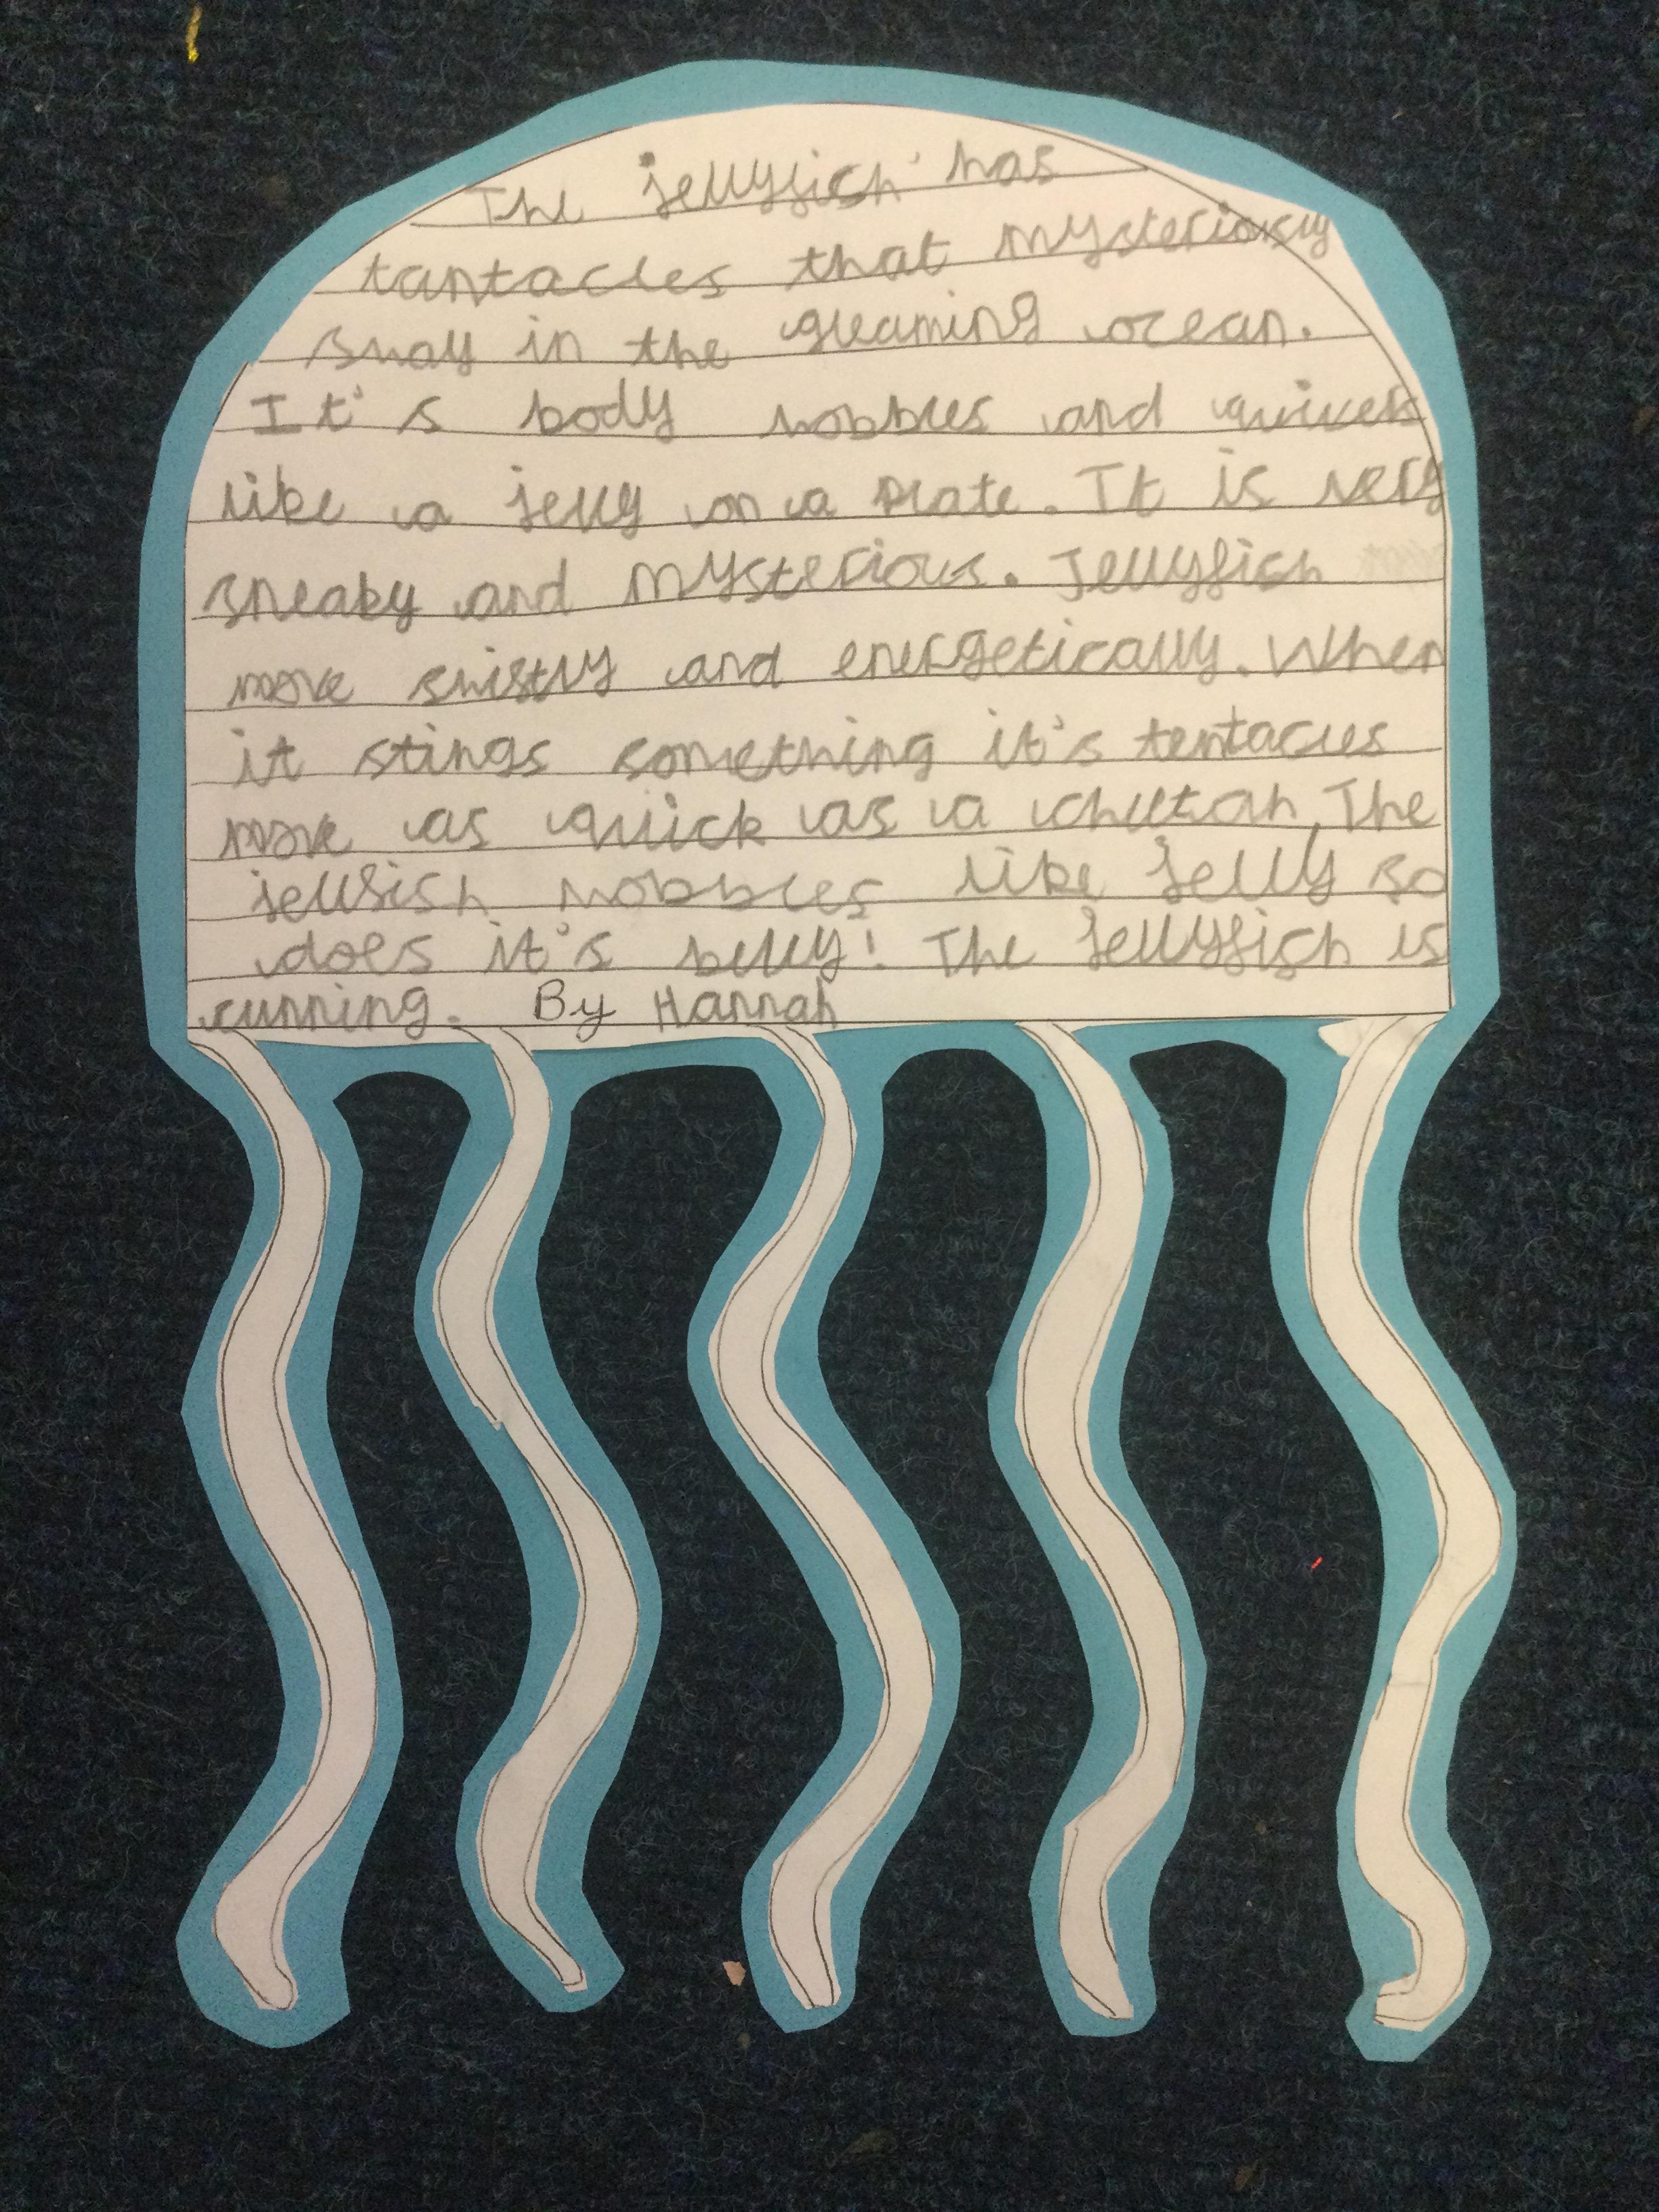 The jellyfish has
tantacles that mysteriously
sway in the gleaming ocean.
It's body wobbles and quivers
like a jelly on a plate. It is very
sneaky and mysterious. Jellyfish
move swiftly and energetically. When
it stings something it's tentacles
move as quick as a cheetah. The
jellfish wobbles like jelly so
does it's belly! The jellyfish is
cunning. By Hannah